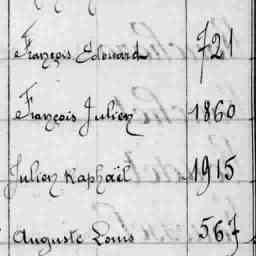 François Edouard 721
François Julien 1860
Julien Raphaël 1915
Auguste Louis 567